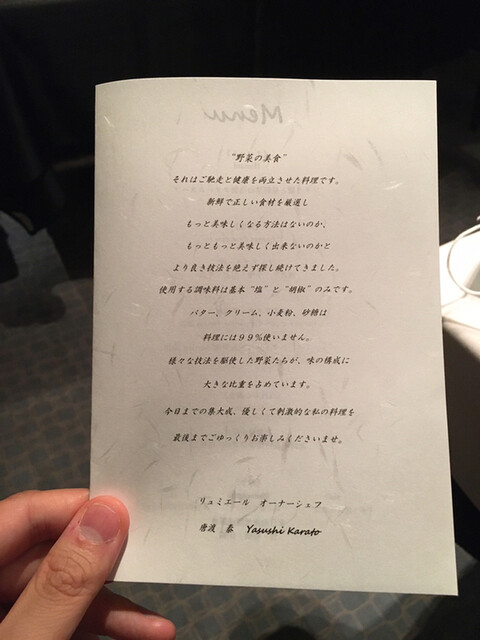 Menu
“野菜の美食”
それはご馳走と健康を両立させた料理です。
新鮮で正しい食材を厳選し
もっと美味しくなる方法はないのか、
もっともっと美味しく出来ないのかと
より良き技法を絶えず探し続けてきました。
使用する調味料は基本“塩”と“胡椒”のみです。
バター、クリーム、小麦粉、砂糖は
料理には99%使いません。
様々な技法を駆使した野菜たちが、味の構成に
大きな比重を占めています。
今日までの集大成、優しくて刺激的な私の料理を
最後までごゆっくりお楽しみくださいませ。
リュミエール オーナーシェフ
唐渡 泰 Yasushi Karato